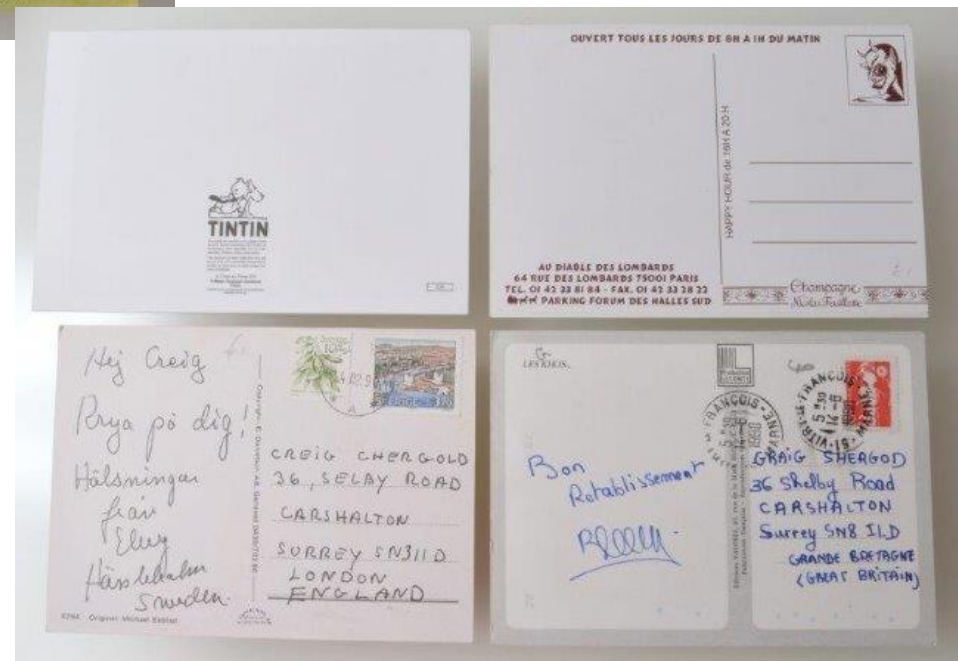 TINTIN
OUVERT TOUS LES JOURS DE 8H A 1H DU MATIN
HAPPY HOUR de 18H A 20 H
AU DIABLE DES LOMBARDS
64 RUE DES LOMBARDS 75001 PARIS
TEL. 01 42 33 81 84 - FAX. 01 42 33 28 22
PARKING FORUM DES HALLES SUD
Champagne
Nicolas Feuillatte
Hej Creig
Krya på dig!
Hälsningar
från
Hässleholm
Sweden
CREIG CHERGOLD
36, SELAY ROAD
CARSHALTON
SURREY SN311D
LONDON
ENGLAND
LES KIKIS.
Bon
Retablissement
5 H 30
14-6
1990
GRAIG SHERGOD
36 Shelby Road
CARSHALTON
Surrey SN8 1LD
GRANDE BRETAGNE
(GREAT BRITAIN)